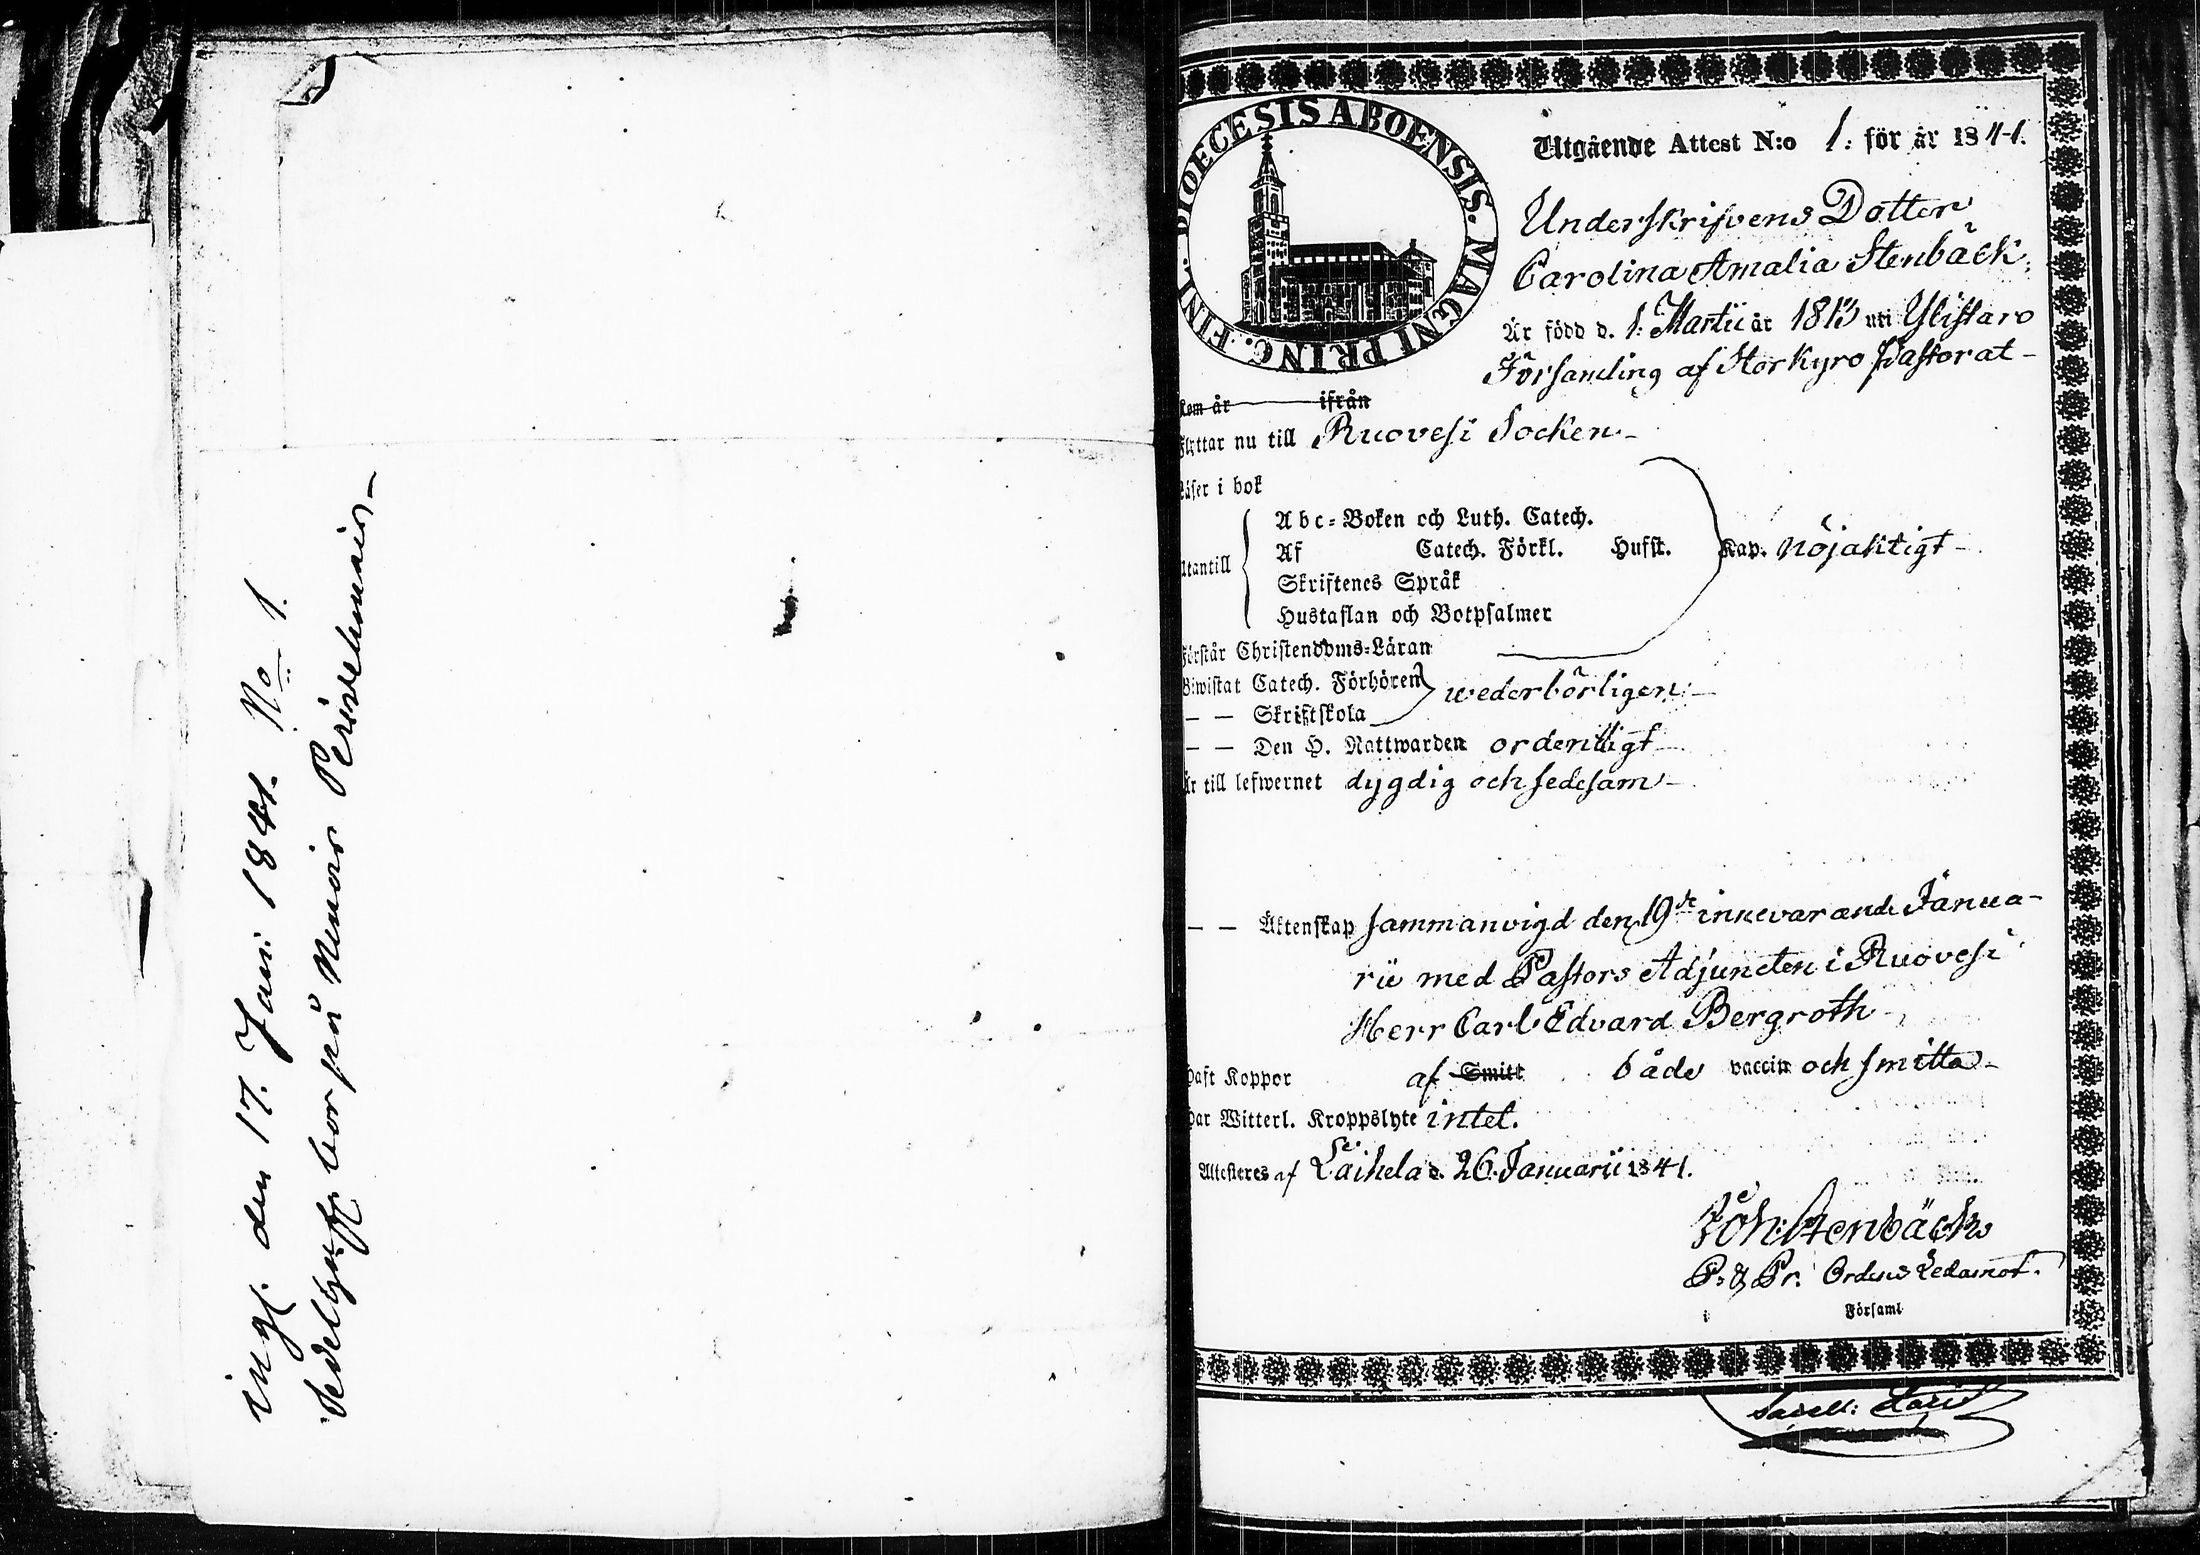 ingf. den 17. Juni 1841. No 1.
bor på Memoir
DIOECESIS ABOENSIS. MAGNI PRINC. FINL.
Utgående Attest N:o 1: för år 1841.
Underskrifvens Dotter
Carolina Amalia Stenbäck,
Är född d. 1: Martii år 1813 uti Ylistaro
Församling af Storkyro Pastorat –
Kom år ifrån
Flyttar nu till Ruovesi Socken –
Läser i bok
Abc-Boken och Luth. Catech.
Utantill Af Catech. Förkl. Hufst. Kap. nöjaktigt –
Skriftenes Språk
Hustaflan och Botpsalmer
Förstår Christendoms-Läran
Biwistat Catech. Förhören wederbörligen –
— — Skriftskola
— — Den H. Nattwarden ordentligt –
Är till lefwernet dygdig och sedesam –
— — Äktenskap sammanvigd den 19de innevarande Janua-
rii med Pastors Adjuncten i Ruovesi
Herr Carl Edvard Bergroth –
Haft Koppor af Smitt både vaccin och smitta –
Har Witterl. Kroppslyte intet.
Attesteres af Laihela d. 26. Januarii 1841.
Joh: Stenbäck
P. & Pr. Ordens Ledamot.
Församl